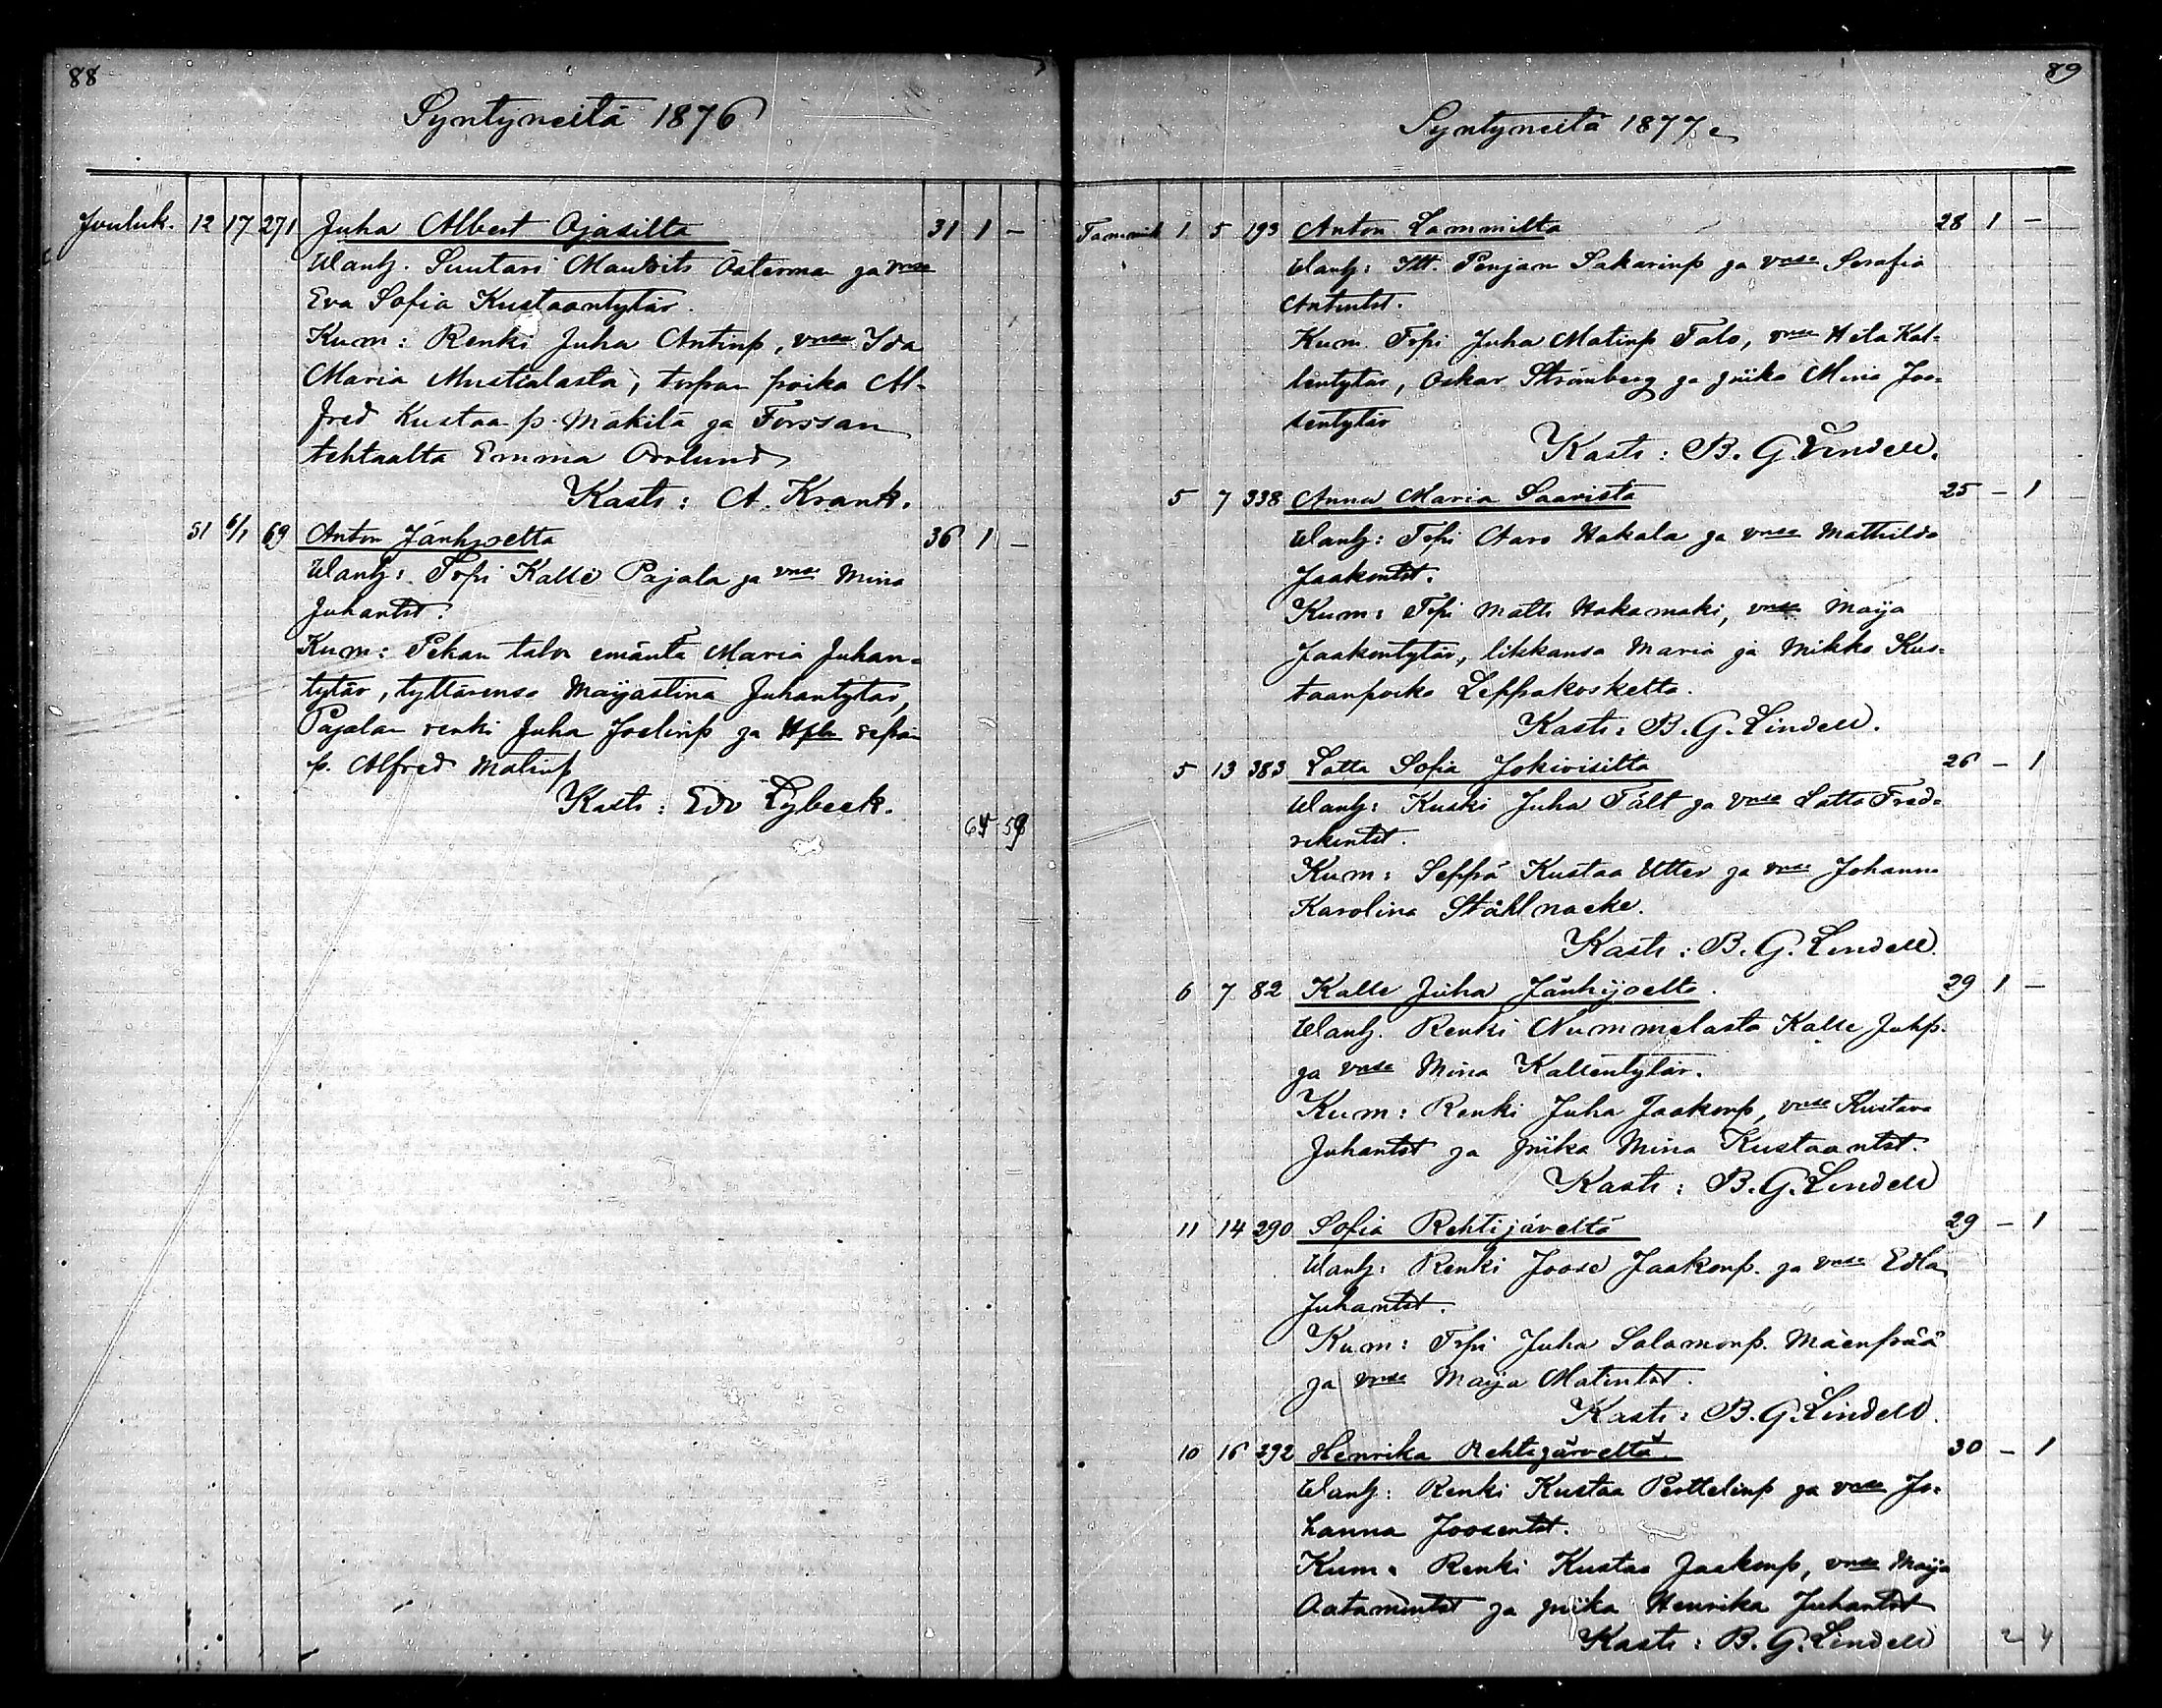 88
Syntyneitä 1876
Jouluk. 12 17 271 Juha Albert Ojasilta 31 1 –
Wanh. Suutari Maurits Österman ja vmsa
Eva Sofia Kustaantytär.
Kum: Renki Juha Antinp, vmsa Ida
Maria Mustialasta, torpan poika Al-
fred Kustaa p. Mäkilä ja Forssan
tehtaalta Emma
Kasti: A. Krank.
31 6/1 69 Anton Jänhjoelta 36 1 –
Wanh: Trpi Kalle Pajala ja vmsa Mina
Juhantst.
Kum: Pekan talon emäntä Maria Juhan-
tytär, tyttärensä Maijastina Juhantytär,
Pajalan renki Juha Joelinp ja
p. Alfred Matinp
Kasti: Edv Lybeck.
64 59
89
Syntyneitä 1877
Tammik 1 5 193 Anton Lammilta 28 1 –
Wanh: Itt. Penjam Sakarinp ja vmsa Serafia
Antintst.
Kum Trpi Juha Matinp Talo, vmsa Heta Kal-
lentytär, Oskar Strömberg ja piika Mina Joo-
sentytär
Kasti: B. G. Lindell.
5 7 338 Anna Maria Saarista 25 – 1
Wanh: Trpi Aaro Hakala ja vmsa Mathilda
Jaakontst.
Kum: Trpi Matti Hakamäki, vmsa Maija
Jaakontytär, likkansa Maria ja Mikko Kus-
taanpoika Leppäkoskelta.
Kasti: B. G. Lindell.
5 13 383 Lotta Sofia Jokioisilta 26 – 1
Wanh: Kuski Juha Tält ja vmsa Lotta Fred-
rikintst.
Kum: Seppä Kustaa Utter ja vmsa Johanna
Karolina Ståhlnacke.
Kasti: B. G. Lindell.
6 7 82 Kalle Juha Jänhijoelta. 29 1 –
Wanh. Renki Nummelasta Kalle Juhp.
ja vmsa Mina Kallentytär.
Kum: Renki Juha Jaakonp, vmsa Kustava
Juhantst ja piika Mina Kustaantst.
Kasti: B. G. Lindell
11 14 290 Sofia Rehtijäveltä 29 – 1
Wanh: Renki Joose Jaakonp. ja vmsa Edla
Juhantst.
Kum: Trpi Juha Salomonp. Mäenpää
ja vmsa Maija Matintst.
Kasti: B. G. Lindell.
10 16 292 Henrika Rehtijärveltä. 30 – 1
Wanh: Renki Kustaa Perttelinp ja vmsa Jo-
hanna Joosentst.
Kum: Renki Kustaa Jaakonp, vmsa Maija
Aatamintst ja piika Henrika Juhantst
Kasti: B. G. Lindell 2 4